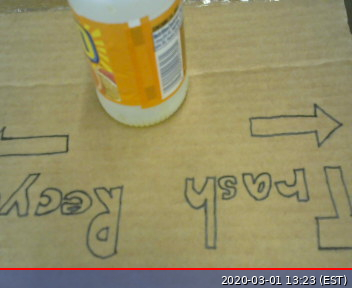 Trash
Recy
2020-03-01 13:23 (EST)